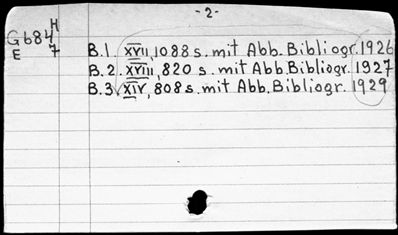 -2-
H
G684
E 7
B.1. XVII, 1088 s. mit Abb. Bibliogr. 1926
B.2. XVIII, 820 s. mit Abb. Bibliogr. 1927
B.3. XIV, 808 s. mit Abb. Bibliogr. 1929